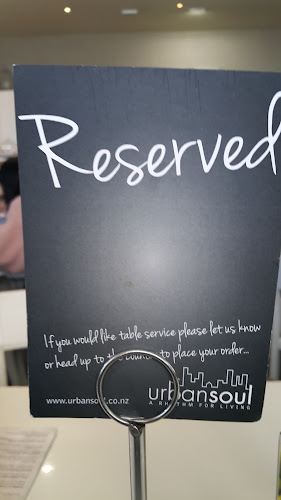 Reserved
If you would like table service please let us know
or head up to the counter to place your order...
www.urbansoul.co.nz
urbansoul
A RHYTHM FOR LIVING